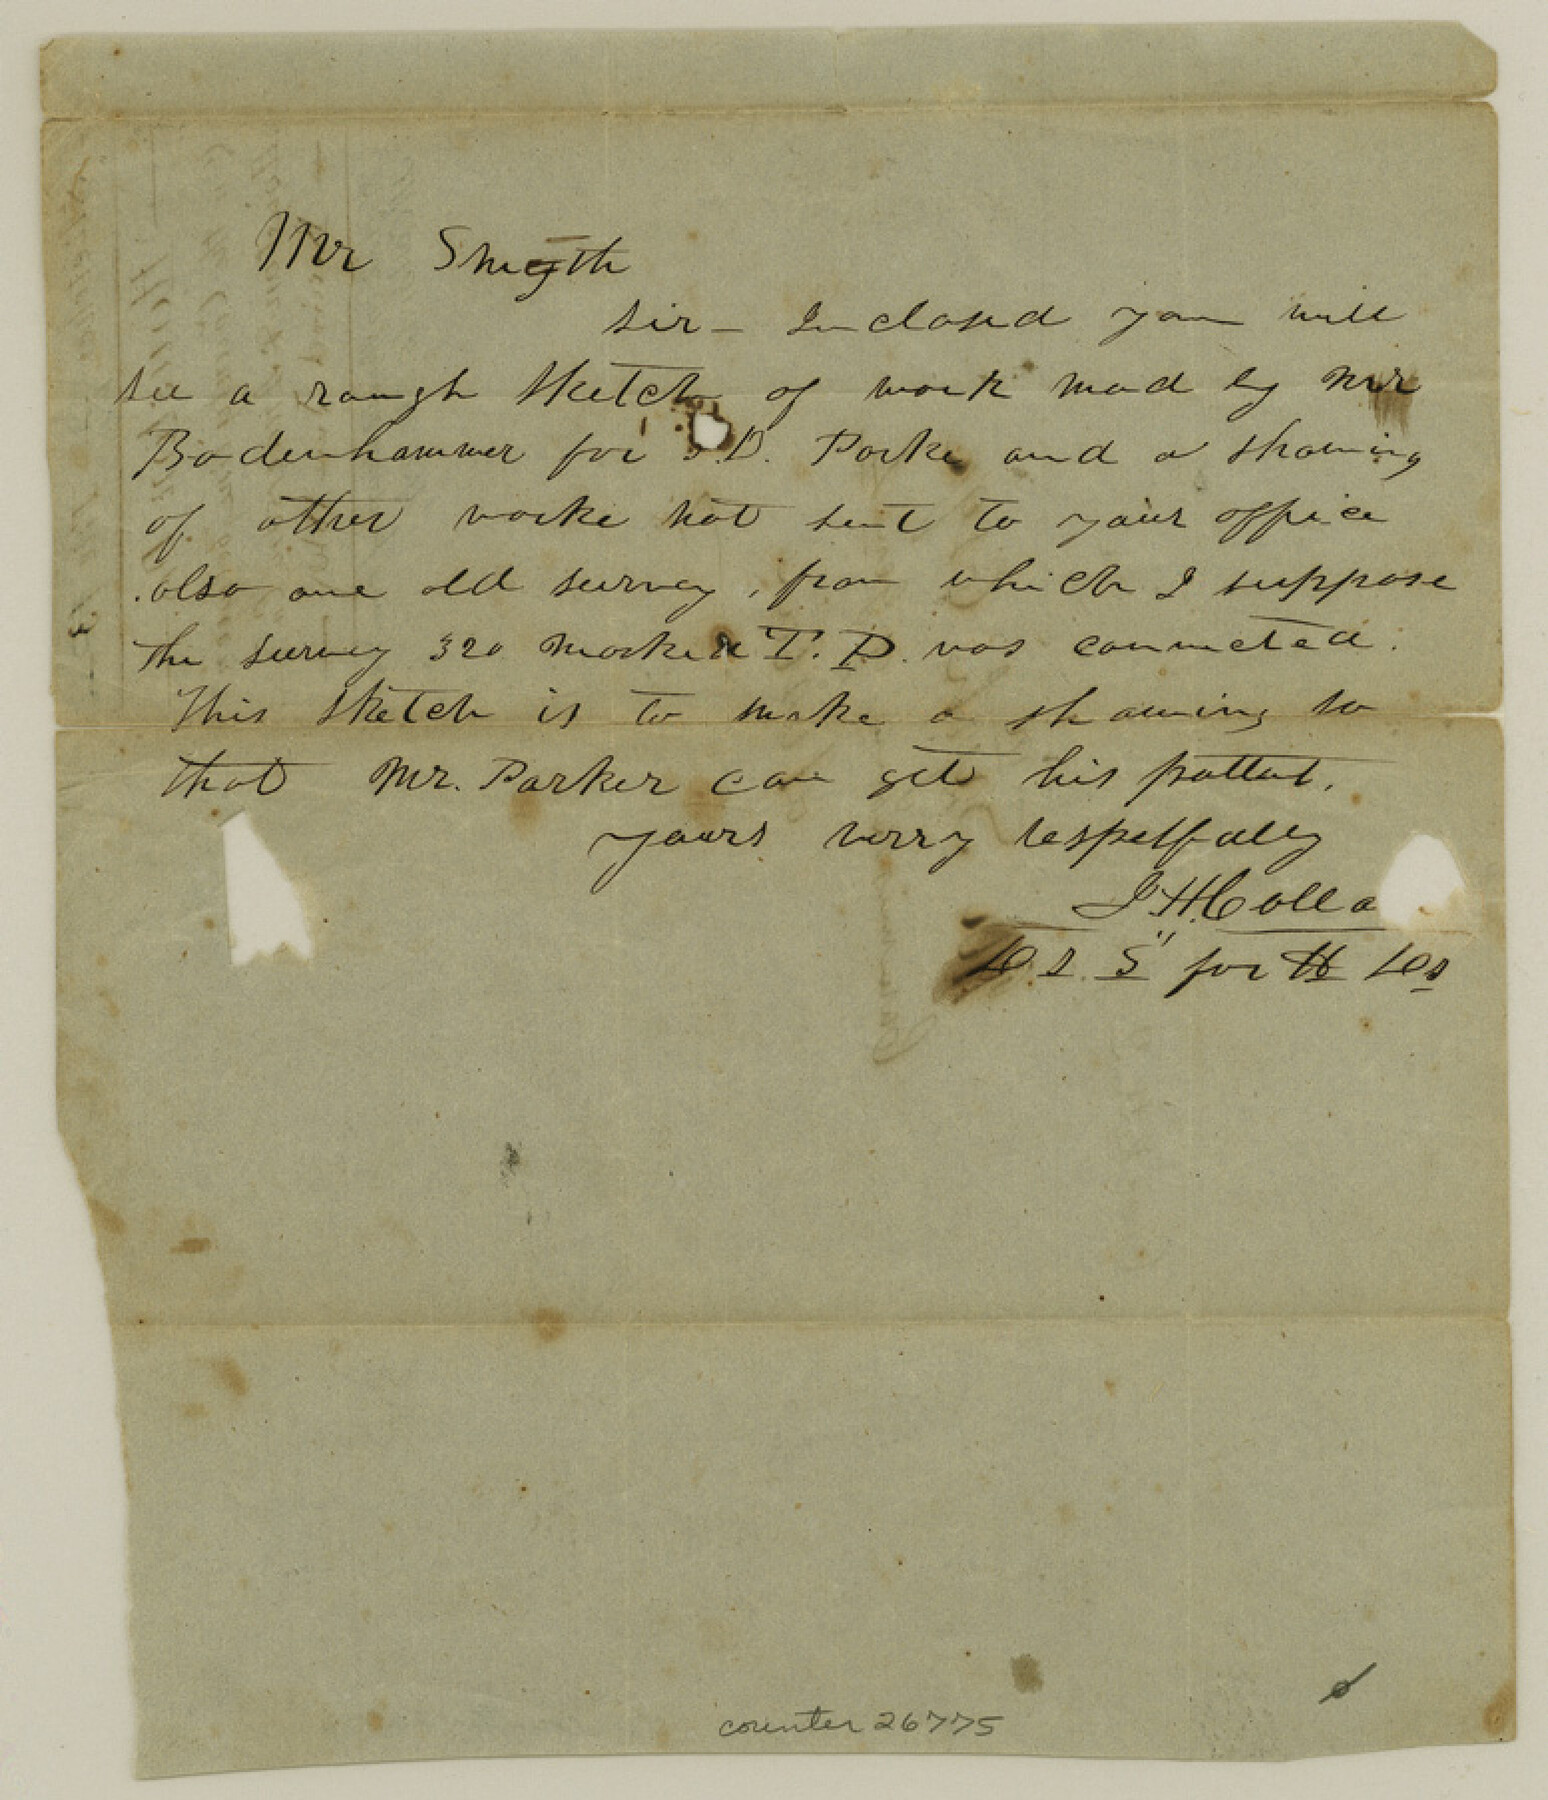 Mr Smyth
Sir - Inclosed you will
see a rough sketch of work mad by Mr
Bodenhammer for .D. Parke and a showing
of other worke not sent to your office
also one old survey, from which I suppose
the survey 320 marked T. P. was connected.
This sketch is to make a showing so
that Mr. Parker can get his pattent.
yours verry
J H. Colla
D. S. S" for H Ds
counter 26775